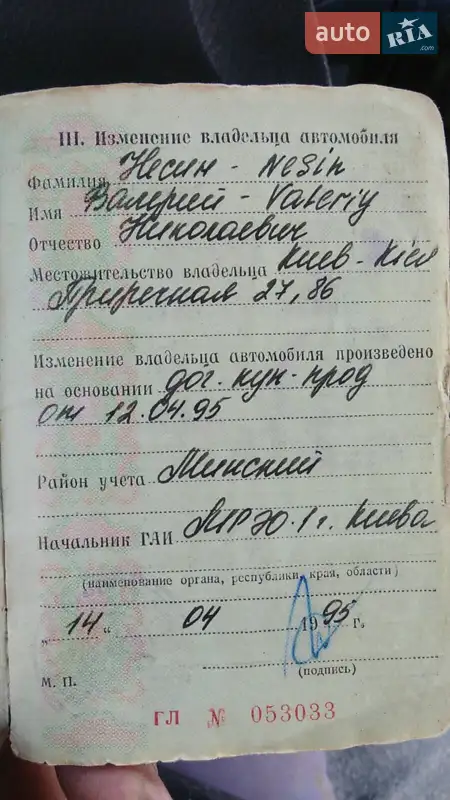 auto RIA .com
III. Изменение владельца автомобиля
Фамилия Несин - Nesin
Имя Валерий - Valeriy
Отчество Николаевич
Местожительство владельца Киев - Kiev
Приречная 27, 86
Изменение владельца автомобиля произведено
на основании дог. куп-прод
от 12.04.95
Район учета Минский
Начальник ГАИ МРЭО-1 г. Киева
(наименование органа, республики, края, области)
„ 14 “ 04 1995 г.
(подпись)
М. П.
ГЛ № 053033